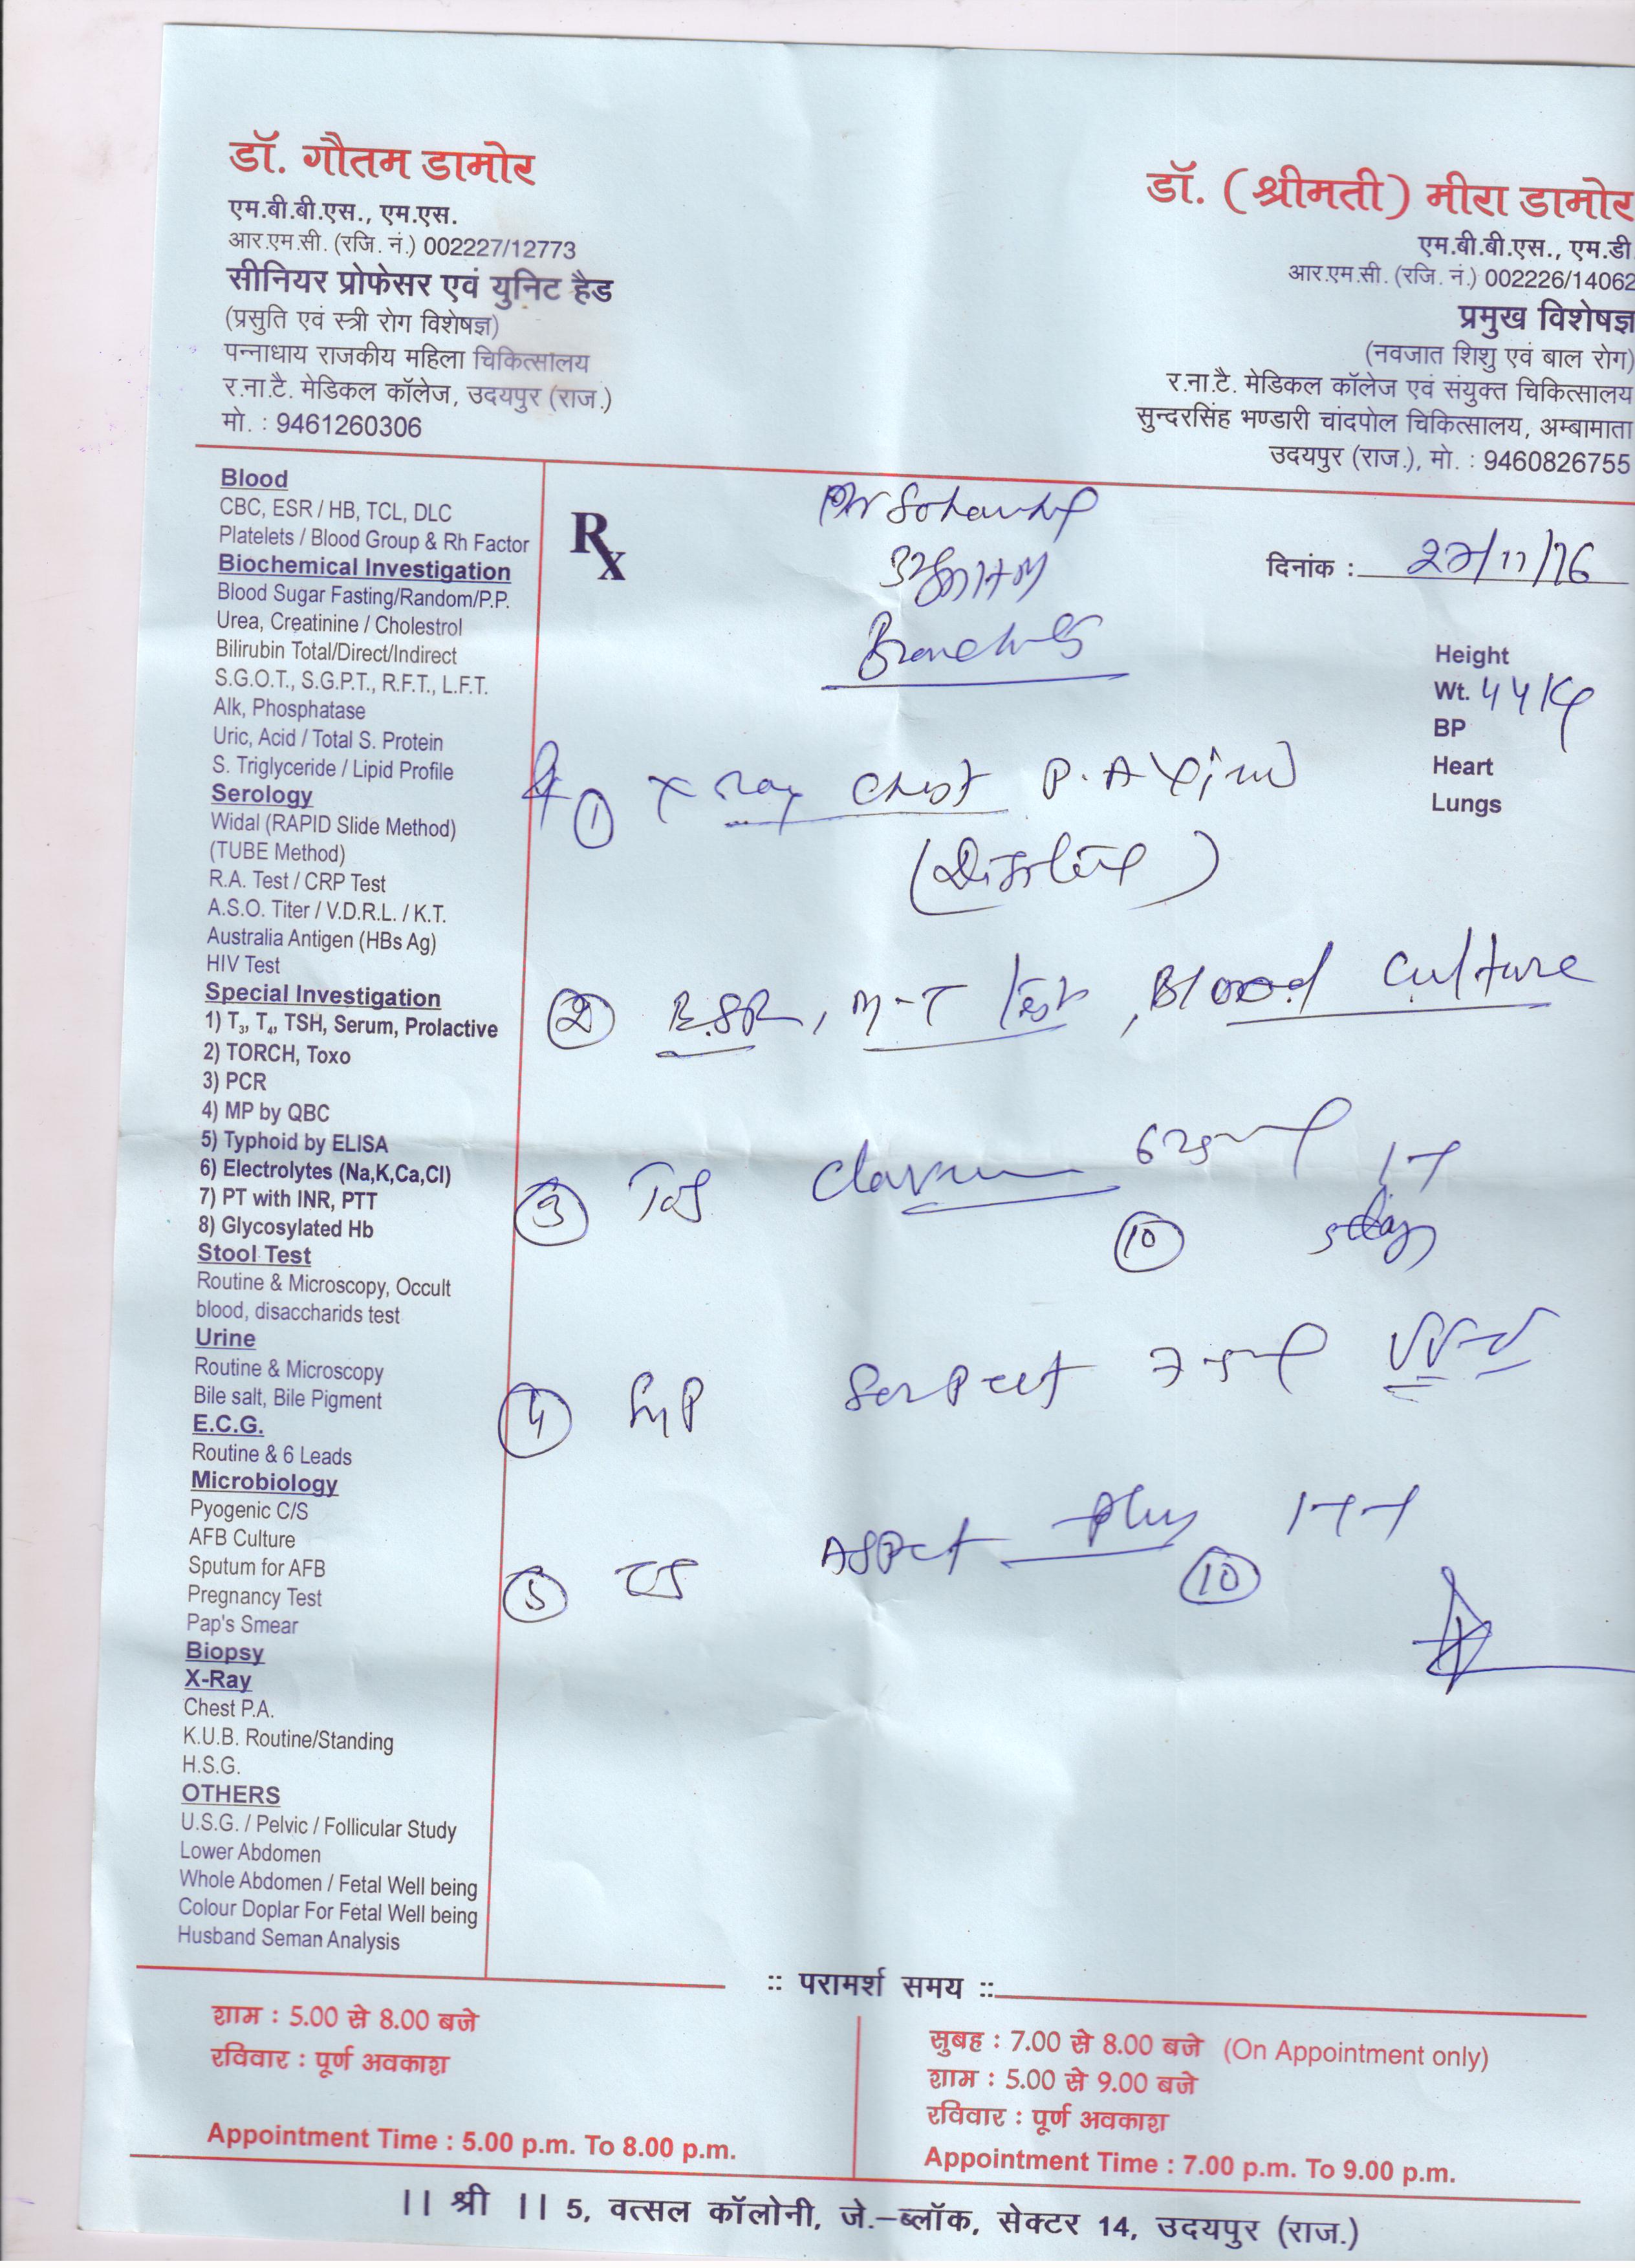 डॉ. गौतम डामोर
एम.बी.बी.एस., एम.एस.
आर.एम.सी. (रजि. नं.) 002227/12773
सीनियर प्रोफेसर एवं युनिट हैड
(प्रसुति एवं स्त्री रोग विशेषज्ञ)
पन्नाधाय राजकीय महिला चिकित्सालय
र.ना.टै. मेडिकल कॉलेज, उदयपुर (राज.)
मो. : 9461260306
डॉ. (श्रीमती) मीरा डामोर
एम.बी.बी.एस., एम.डी
आर.एम.सी. (रजि. नं.) 002226/14062
प्रमुख विशेषज्ञ
(नवजात शिशु एवं बाल रोग)
र.ना.टै. मेडिकल कॉलेज एवं संयुक्त चिकित्सालय
सुन्दरसिंह भण्डारी चांदपोल चिकित्सालय, अम्बामाता
उदयपुर (राज.), मो. : 9460826755
Blood
CBC, ESR / HB, TCL, DLC
Platelets / Blood Group & Rh Factor
Biochemical Investigation
Blood Sugar Fasting/Random/P.P.
Urea, Creatinine / Cholestrol
Bilirubin Total/Direct/Indirect
S.G.O.T., S.G.P.T., R.F.T., L.F.T.
Alk, Phosphatase
Uric, Acid / Total S. Protein
S. Triglyceride / Lipid Profile
Serology
Widal (RAPID Slide Method)
(TUBE Method)
R.A. Test / CRP Test
A.S.O. Titer / V.D.R.L. / K.T.
Australia Antigen (HBs Ag)
HIV Test
Special Investigation
1) T3, T4, TSH, Serum, Prolactive
2) TORCH, Toxo
3) PCR
4) MP by QBC
5) Typhoid by ELISA
6) Electrolytes (Na,K,Ca,Cl)
7) PT with INR, PTT
8) Glycosylated Hb
Stool Test
Routine & Microscopy, Occult
blood, disaccharids test
Urine
Routine & Microscopy
Bile salt, Bile Pigment
E.C.G.
Routine & 6 Leads
Microbiology
Pyogenic C/S
AFB Culture
Sputum for AFB
Pregnancy Test
Pap's Smear
Biopsy
X-Ray
Chest P.A.
K.U.B. Routine/Standing
H.S.G.
OTHERS
U.S.G. / Pelvic / Follicular Study
Lower Abdomen
Whole Abdomen / Fetal Well being
Colour Doplar For Fetal Well being
Husband Seman Analysis
Rx
दिनांक : /11/16
Height
Wt. 44 Kg
BP
Heart
Lungs
1 X ray chest P.A View
2 ESR, M-T Test, Blood Culture
3 Tab 625
10 5 day
4 Syp
5 plus
10
:: परामर्श समय ::
शाम : 5.00 से 8.00 बजे
रविवार : पूर्ण अवकाश
Appointment Time : 5.00 p.m. To 8.00 p.m.
सुबह : 7.00 से 8.00 बजे (On Appointment only)
शाम : 5.00 से 9.00 बजे
रविवार : पूर्ण अवकाश
Appointment Time : 7.00 p.m. To 9.00 p.m.
|| श्री || 5, वत्सल कॉलोनी, जे.–ब्लॉक, सेक्टर 14, उदयपुर (राज.)